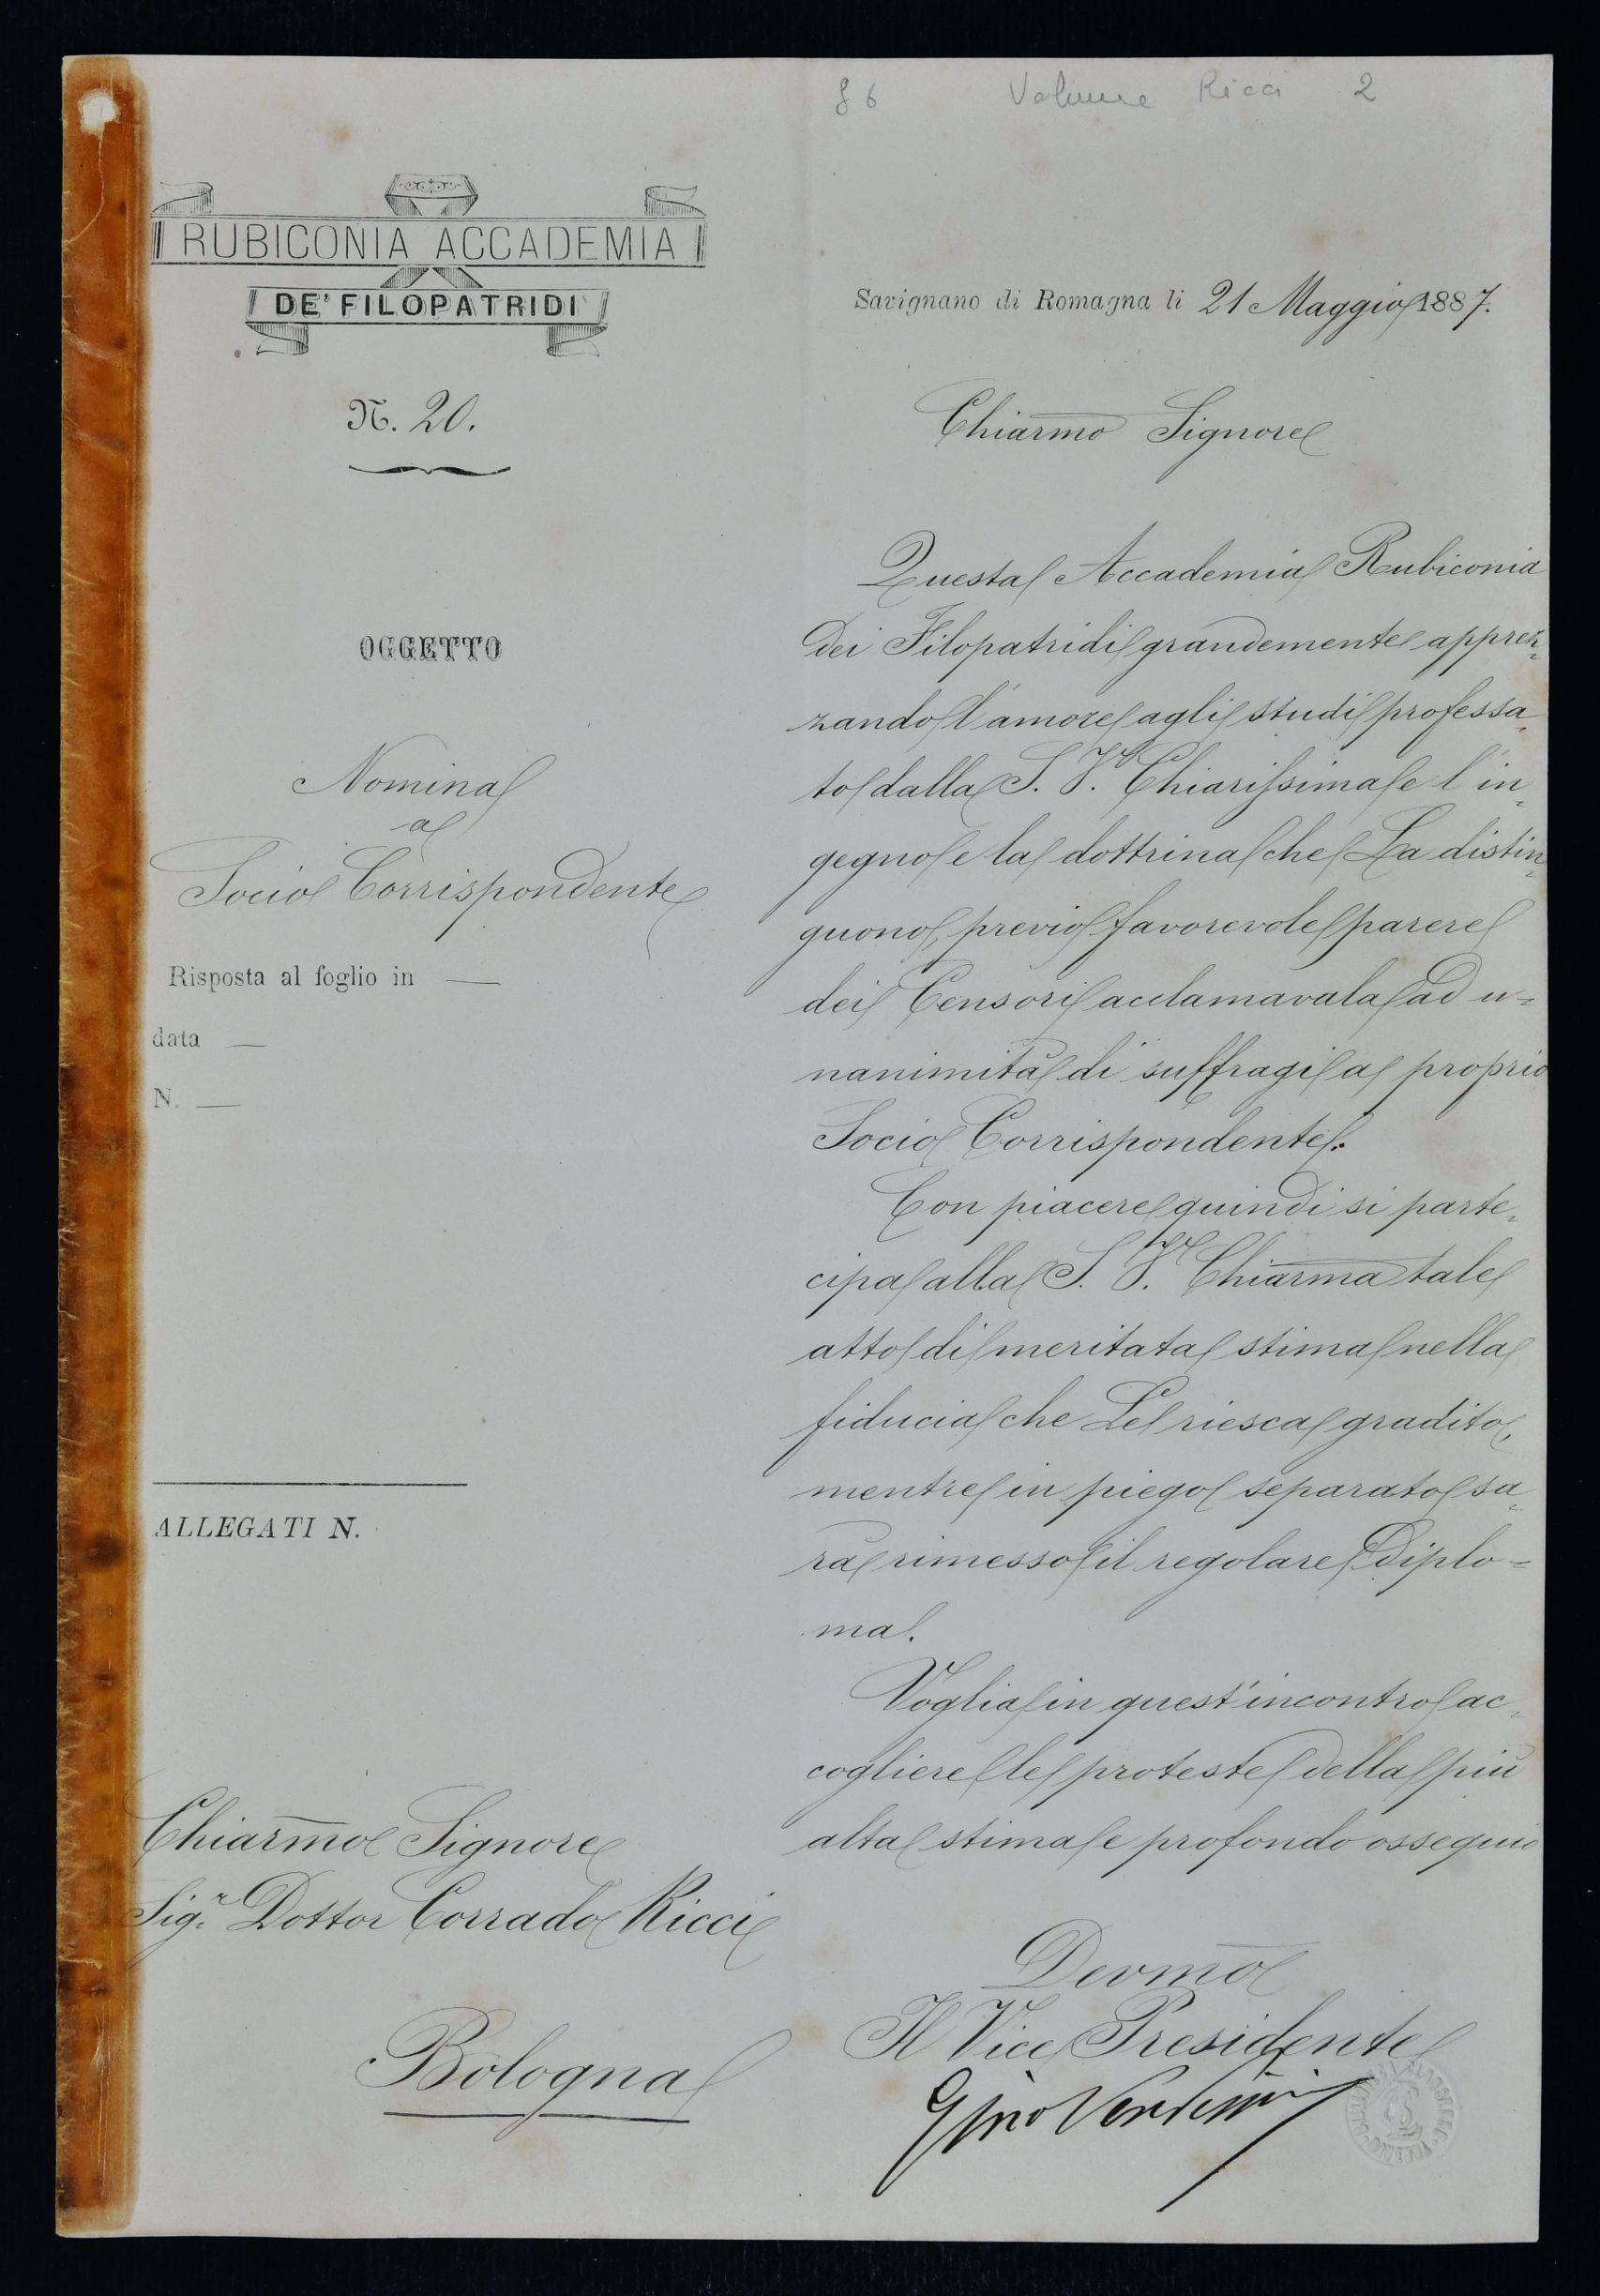 86 Volume Ricci 2
RUBICONIA ACCADEMIA
DE' FILOPATRIDI
N. 20.
OGGETTO
Nomina
a
Socio Corrispondente
Risposta al foglio in —
data —
N. —
ALLEGATI N.
Chiarmo Signore
Sigr. Dottor Corrado Ricci
Bologna
Savignano di Romagna li 21 Maggio 1887.
Chiarmo Signore
Questa Accademia Rubiconia
dei Filopatridi grandemente apprez=
zando l'amore agli studi professa=
to dalla S. V. Chiarissima e l'in=
gegno e la dottrina che La distin=
guono, previo favorevole parere
dei Censori acclamavala ad u=
nanimità di suffragi a proprio
Socio Corrispondente.
Con piacere quindi si parte=
cipa alla S. V. Chiarma tale
atto di meritata stima nella
fiducia che Le riesca gradito,
mentre in piego separato sa=
rà rimesso il regolare Diplo=
ma.
Voglia in quest'incontro ac=
cogliere le proteste della più
alta stima e profondo ossequio
Devmo
Il Vice Presidente
Gino Vendemini